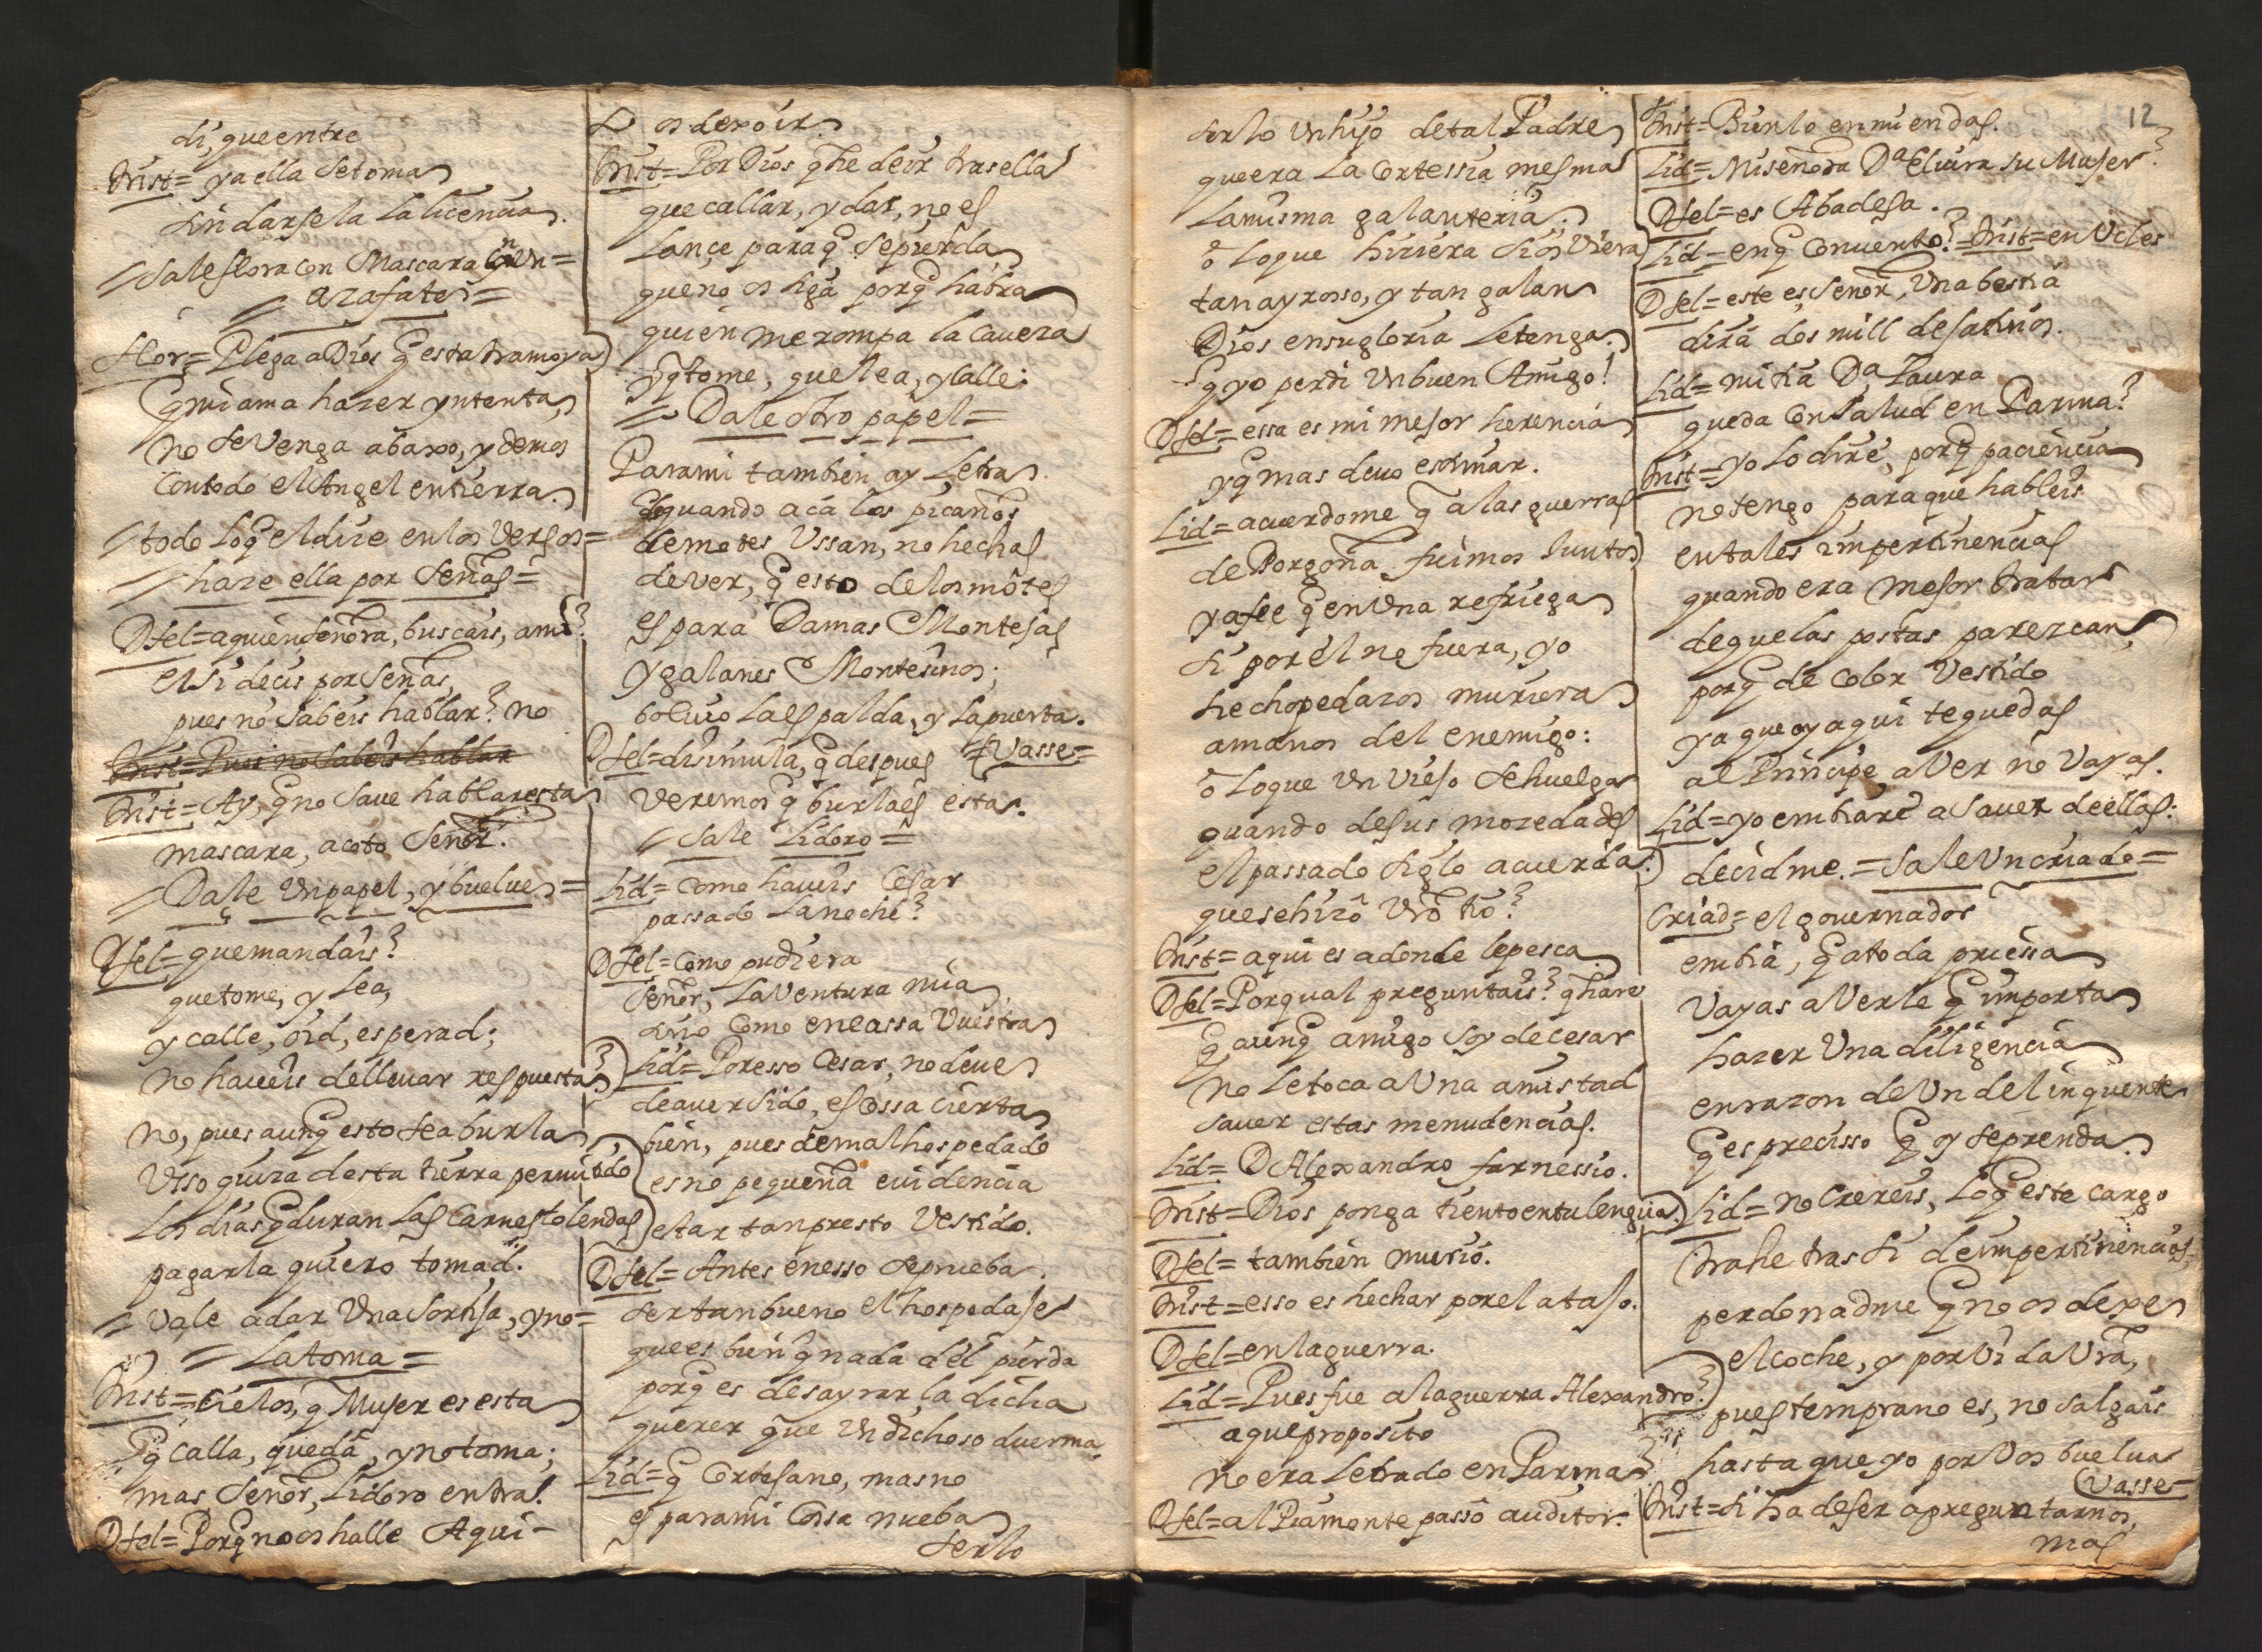 di, que entre
Trist= ya ella se toma
sin darsela la licencia.
= Sale flora con Mascara y con Un =
= azafate =
Flor= Plega a Dios q̄ esta tramoya
q̄ mi ama hazer yntenta,
no se venga abaxo, y demos
con todo el Angel en tierra.
= todo lo q̄ el dize en los versos =
= haze ella por señas =
D fel= a quien señora, buscais, ami?
el si decis por señas,
pues no sabeis hablar? no
Trist= Pues no sabeis hablar
Trist= Ay, q̄ no save hablar esta
mascara, acoto señor.
= Dale Un papel, y buelue =
D fel= que mandais?
que tome, y lea,
y calle, oid, esperad;
no haueis de lleuar respuesta?
no, pues aunq̄ esto sea burla
Uso quiza desta tierra permitido
los dias q̄ duran las Carnestolendas
pagarla quiero tomad.
= vale a dar Una sortija, y no =
= la toma =
Trist= Cielos, q̄ Mujer es esta
q̄ calla, queda, y no toma;
mas señor, Lidoro entra.
D fel= Porq̄ no os halle Aqui-
os dexo ir.
Trist= Por Dios q̄ he de ir tras ella
que callar, y dar, no es
lançe para q̄ se pierda
que no os siga porq̄ habra
quien me rompa la caueza
y q̄ tome, que lea, y calle:
= Dale otro papel =
Para mi tambien ay letra.
de quando aca los picaños
de motes Ussan, no hechas
de ver, q̄ esto de los motes
es para Damas Montesas
y galanes Montesinos;
boluio la espalda, y la puerta.
= Vasse =
D fel= disimula, q̄ despues
veremos q̄ burlas estas.
= Sale Lidoro =
Lid= como haueis Cesar
passado la noche?
D fel= como pudiera
señor, la ventura mia
sino como en cassa Vuestra
Lid= Por esso Cesar, no deue
de auer sido, es cossa cierta
bien, pues de mal hospedado
es no pequeña euidencia
estar tan presto Vestido.
D fel= Antes en esso se prueba
ser tan bueno el hospedaje
que es bien q̄ nada del pierda
porq̄ es desayrar la dicha
querer que Un dichoso duerma.
Lid= q̄ cortesano, mas no
es para mi cossa nueba
serlo
serlo Un hijo de tal Padre
que era la Cortessia mesma
la misma galanteria.
ō lo que hiciera si os viera
tan ayrosso, y tan galan
Dios en su gloria le tenga.
q̄ yo perdi Un buen Amigo!
D fel= essa es mi mejor herencia
y q̄ mas deuo estimar.
Lid= acuerdome q̄ a las guerras
de Borgoña fuimos Juntos
y a fee q̄ en Una refriega
si por él no fuera, yo
hecho pedazos muriera
a manos del enemigo:
ō lo que Un viejo se huelga
quando de sus mozedades
el passado siglo acuerda.
que se hizo Vrō tio?
Trist= aqui es adonde le pesca
D fel= Por qual preguntais? q̄ hare
q̄ aunq̄ amigo soy de cesar
no le toca a Una amistad
sauer estas menudencias.
Lid= D Alexandro farnessio.
Trist= Dios ponga tiento en tu lengua.
D fel= tambien murio.
Trist= esso es hechar por el atajo.
D fel= en la guerra.
Lid= Pues fue a la guerra Alexandro?
a que proposito
no era Letrado en Parma?
D fel= al Piamonte passō auditor.
12
Trist= Bien lo enmiendas.
Lid= Mi señora Dᵃ Eluira su Mujer?
D fel= es Abadesa.
Lid= en q̄ Conuento? = Trist= en Ucles
D fel= este es, Señor, Una bestia
dirá dos mill desatinos.
Lid= mi tia Dᵃ Laura
queda con salud en Parma?
Trist= yo lo diré, porq̄ paciencia
no tengo para que hableis
en tales impertinencias
quando era mejor tratar
de que las postas parezcan,
porq̄ de color Vestido
ya que oy aqui te quedas
al Principe a ver no Vayas.
Lid= yo embiaré a sauer de ellas:
decidme. = Sale Un criado =
Criad= el gouernador
embia, q̄ a toda priessa
Vayas a Verle q̄ importa
hazer Una diligencia
en razon de Un delinquente
q̄ es precisso q̄ oy se prenda.
Lid= no creereis, lo q̄ este cargo
trahe tras si de impertinencias,
perdonadme q̄ no os dexe
el coche, y por Vi la Vrā,
pues temprano es, no salgais
hasta que yo por Vos buelua
Vasse =
Trist= si ha de ser a preguntarnos,
mas